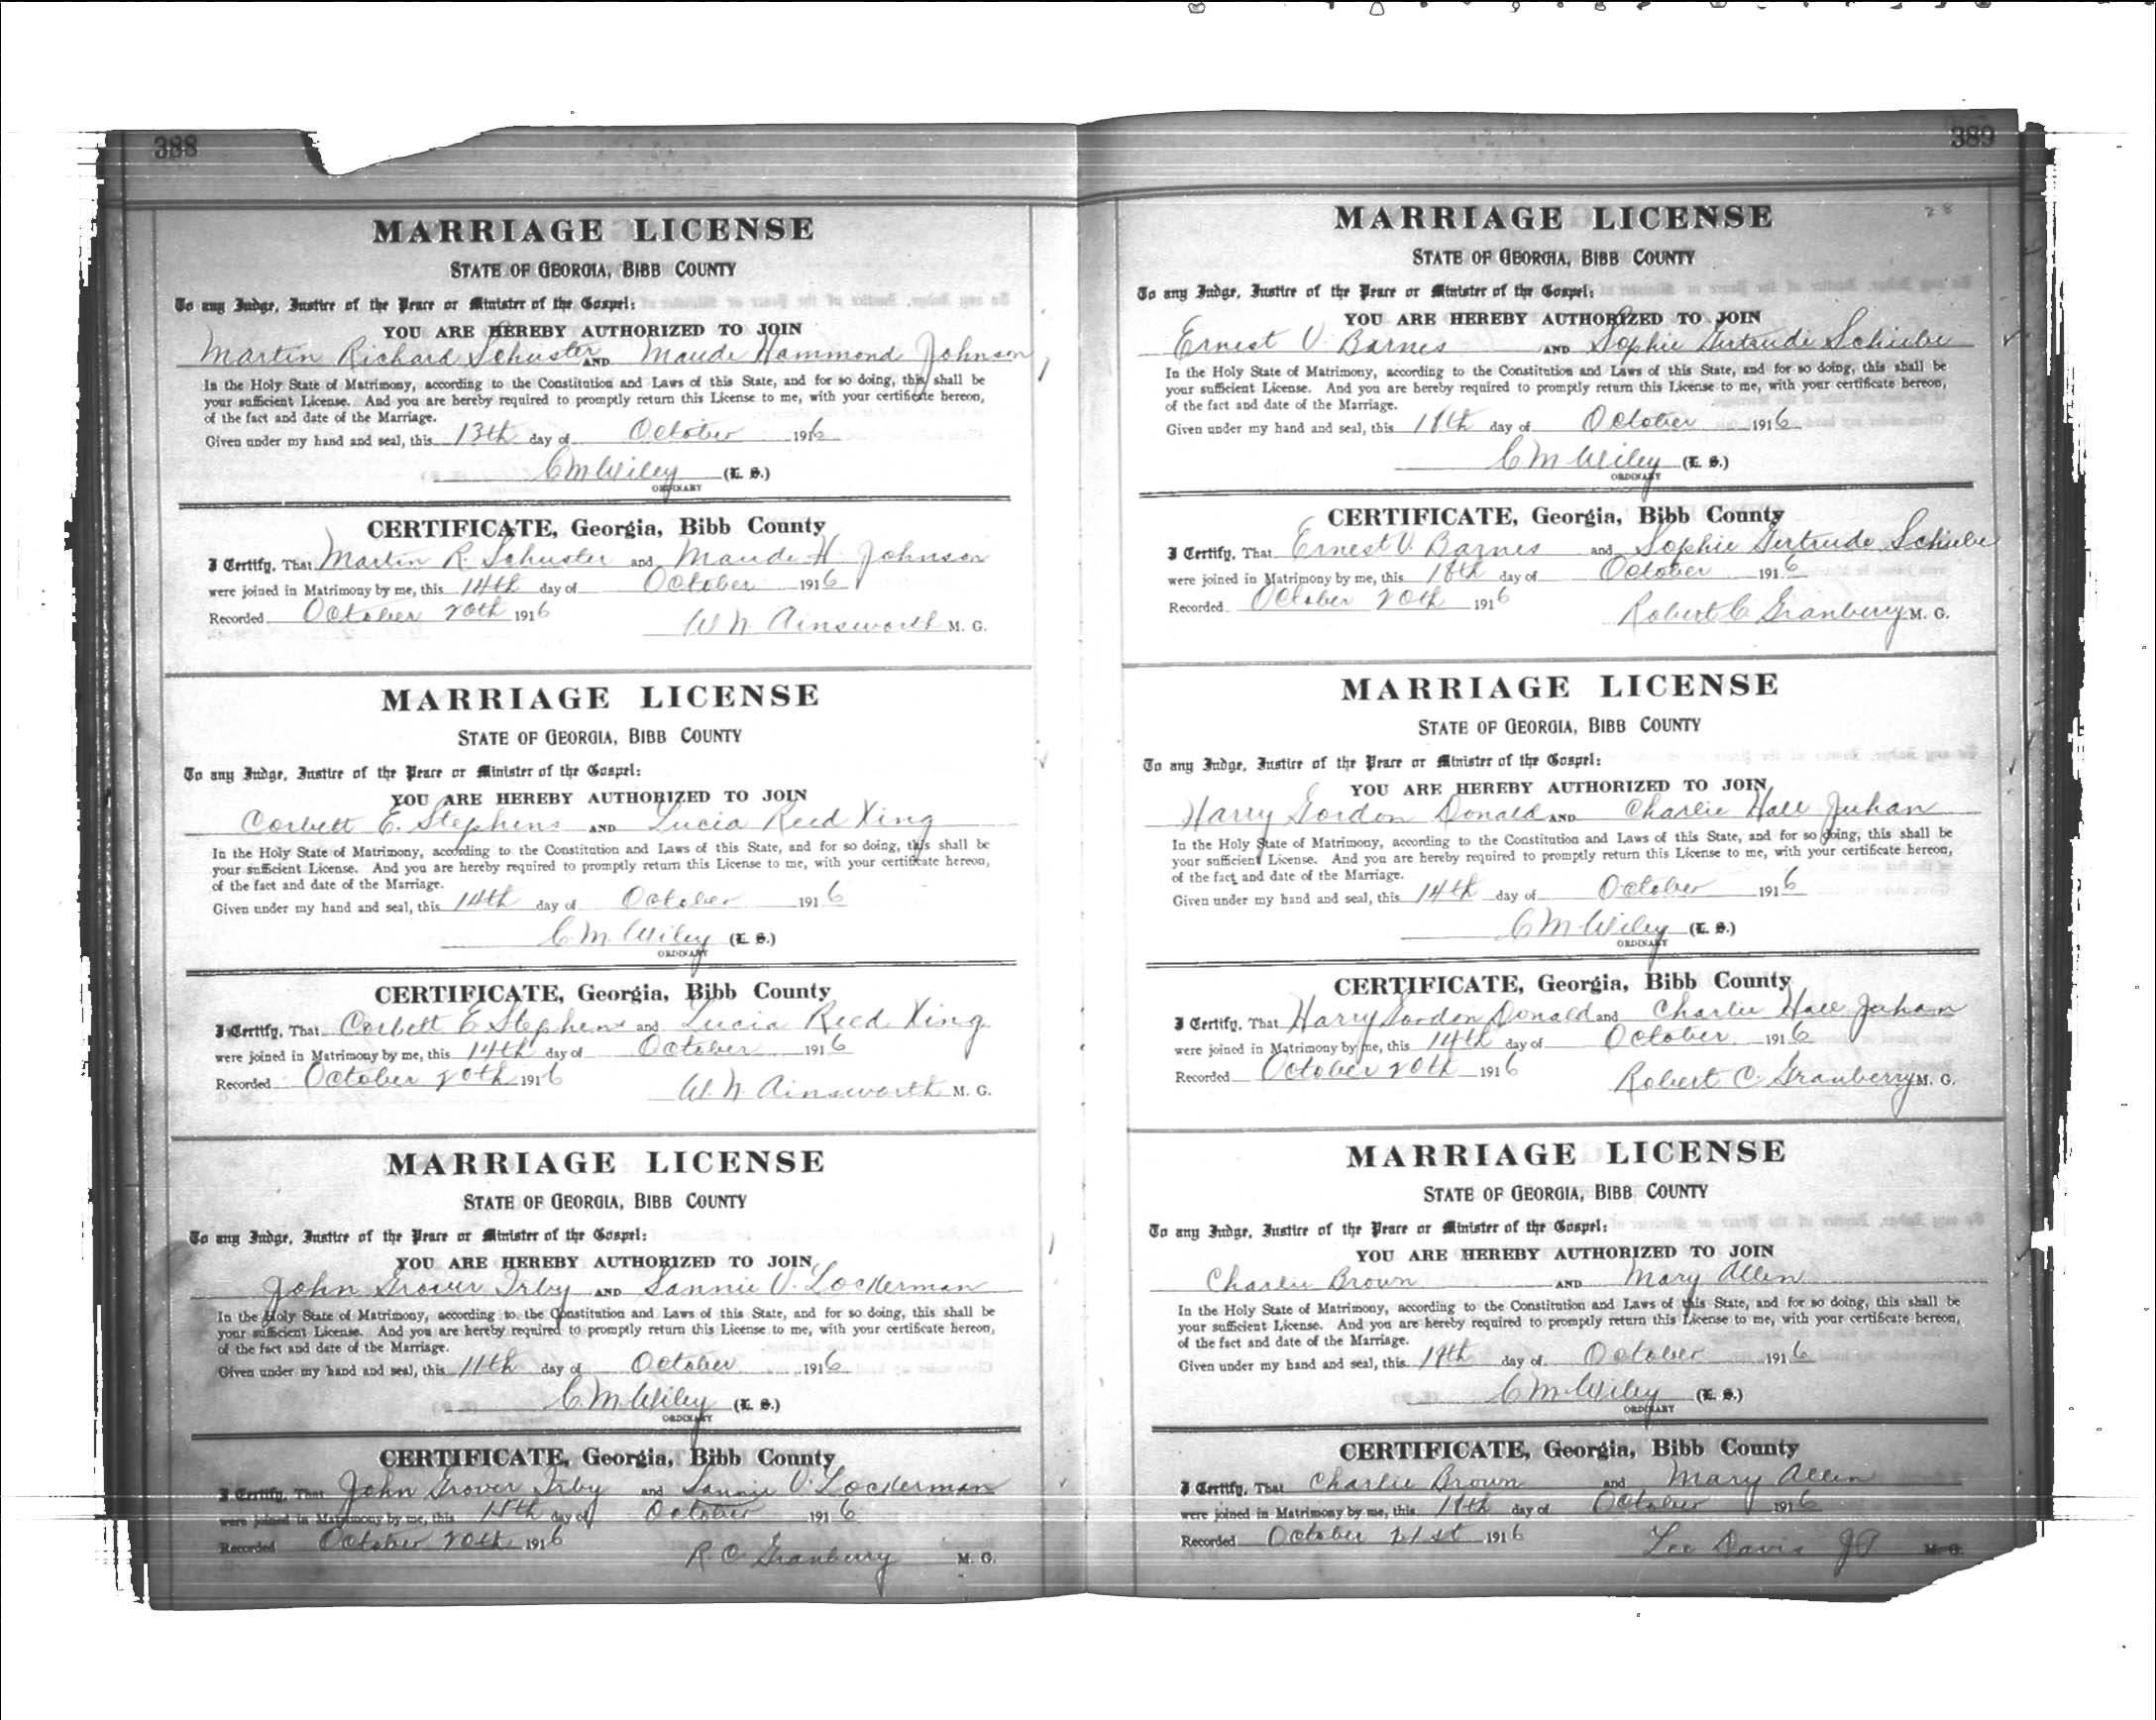 388
MARRIAGE LICENSE
STATE OF GEORGIA, BIBB COUNTY
To any Judge, Justice of the Peace or Minister of the Gospel:
YOU ARE HEREBY AUTHORIZED TO JOIN
Martin Richard Schuster AND Maude Hammond Johnson
In the Holy State of Matrimony, according to the Constitution and Laws of this State, and for so doing, this shall be
your sufficient License. And you are hereby required to promptly return this License to me, with your certificate hereon,
of the fact and date of the Marriage.
Given under my hand and seal, this 13th day of October 1916
C M Wiley (L. S.)
ORDINARY
CERTIFICATE, Georgia, Bibb County
I Certify, That Martin R. Schuster and Maude H. Johnson
were joined in Matrimony by me, this 14th day of October 1916
Recorded October 20th 1916
W N Ainsworth M. G.
MARRIAGE LICENSE
STATE OF GEORGIA, BIBB COUNTY
To any Judge, Justice of the Peace or Minister of the Gospel:
YOU ARE HEREBY AUTHORIZED TO JOIN
Corbett E. Stephens AND Lucia Reed King
In the Holy State of Matrimony, according to the Constitution and Laws of this State, and for so doing, this shall be
your sufficient License. And you are hereby required to promptly return this License to me, with your certificate hereon,
of the fact and date of the Marriage.
Given under my hand and seal, this 14th day of October 1916
C. M. Wiley (L. S.)
ORDINARY
CERTIFICATE, Georgia, Bibb County
I Certify, That Corbett E Stephens and Lucia Reed King
were joined in Matrimony by me, this 14th day of October 1916
Recorded October 20th 1916
W. N. Ainsworth M. G.
MARRIAGE LICENSE
STATE OF GEORGIA, BIBB COUNTY
To any Judge, Justice of the Peace or Minister of the Gospel:
YOU ARE HEREBY AUTHORIZED TO JOIN
John Grover Irby AND Lannie V. Lockerman
In the Holy State of Matrimony, according to the Constitution and Laws of this State, and for so doing, this shall be
your sufficient License. And you are hereby required to promptly return this License to me, with your certificate hereon,
of the fact and date of the Marriage.
Given under my hand and seal, this 11th day of October 1916
C. M. Wiley (L. S.)
ORDINARY
CERTIFICATE, Georgia, Bibb County
I Certify, That John Grover Irby and Lannie V. Lockerman
were joined in Matrimony by me, this day of October 1916
Recorded October 20th 1916
R. C. Granberry M. G.
389
28
MARRIAGE LICENSE
STATE OF GEORGIA, BIBB COUNTY
To any Judge, Justice of the Peace or Minister of the Gospel:
YOU ARE HEREBY AUTHORIZED TO JOIN
Ernest V. Barnes AND Sophie Gertrude Schiebe
In the Holy State of Matrimony, according to the Constitution and Laws of this State, and for so doing, this shall be
your sufficient License. And you are hereby required to promptly return this License to me, with your certificate hereon,
of the fact and date of the Marriage.
Given under my hand and seal, this 18th day of October 1916
C M Wiley (L. S.)
ORDINARY
CERTIFICATE, Georgia, Bibb County
I Certify, That Ernest V. Barnes and Sophie Gertrude Schiebe
were joined in Matrimony by me, this 18th day of October 1916
Recorded October 20th 1916
Robert C Granberry M. G.
MARRIAGE LICENSE
STATE OF GEORGIA, BIBB COUNTY
To any Judge, Justice of the Peace or Minister of the Gospel:
YOU ARE HEREBY AUTHORIZED TO JOIN
Harry Gordon Donald AND Charlie Hall Juhan
In the Holy State of Matrimony, according to the Constitution and Laws of this State, and for so doing, this shall be
your sufficient License. And you are hereby required to promptly return this License to me, with your certificate hereon,
of the fact and date of the Marriage.
Given under my hand and seal, this 14th day of October 1916
C M Wiley (L. S.)
ORDINARY
CERTIFICATE, Georgia, Bibb County
I Certify, That Harry Gordon Donald and Charlie Hall Juhan
were joined in Matrimony by me, this 14th day of October 1916
Recorded October 20th 1916
Robert C Granberry M. G.
MARRIAGE LICENSE
STATE OF GEORGIA, BIBB COUNTY
To any Judge, Justice of the Peace or Minister of the Gospel:
YOU ARE HEREBY AUTHORIZED TO JOIN
Charlie Brown AND Mary Allen
In the Holy State of Matrimony, according to the Constitution and Laws of this State, and for so doing, this shall be
your sufficient License. And you are hereby required to promptly return this License to me, with your certificate hereon,
of the fact and date of the Marriage.
Given under my hand and seal, this day of October 1916
C M Wiley (L. S.)
ORDINARY
CERTIFICATE, Georgia, Bibb County
I Certify, That Charlie Brown and Mary Allen
were joined in Matrimony by me, this day of October 1916
Recorded October 21st 1916
Lee Davis JP M. G.